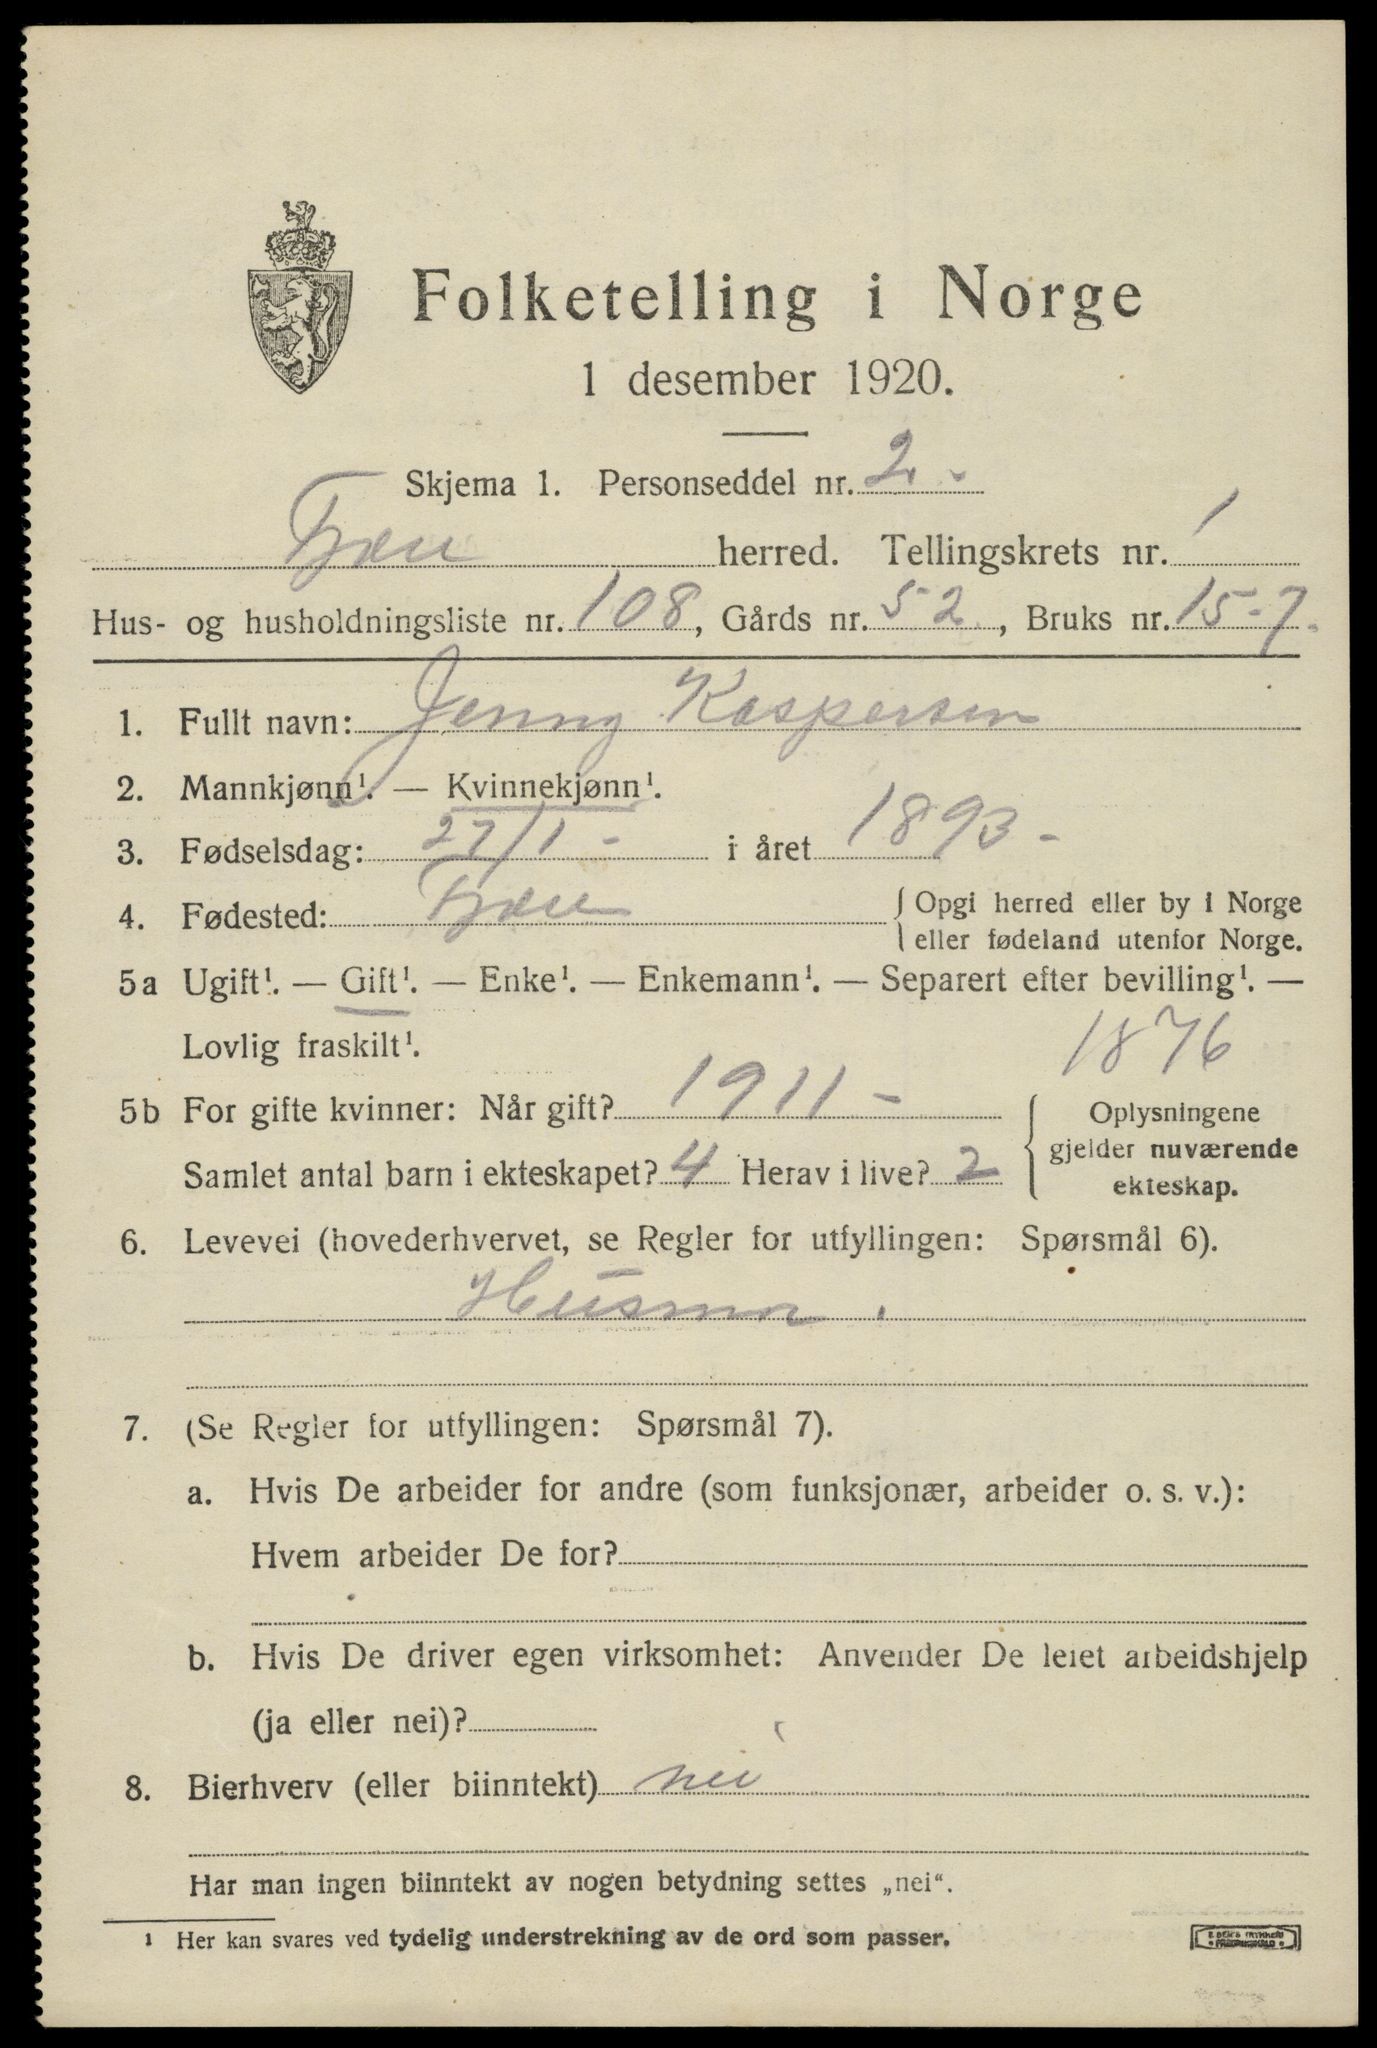 Folketelling i Norge
1 desember 1920.
Skjema 1. Personseddel nr. 2.
Træn herred. Tellingskrets nr. 1
Hus- og husholdningsliste nr. 108, Gårds nr. 52, Bruks nr. 15-7.
1. Fullt navn: Jenny Kaspersen
2. Mannkjønn¹. — Kvinnekjønn¹.
3. Fødselsdag: 27/1- i året 1893-
4. Fødested: Træn { Opgi herred eller by i Norge
eller fødeland utenfor Norge.
5a Ugift¹. — Gift¹. — Enke¹. — Enkemann¹. — Separert efter bevilling¹. —
Lovlig fraskilt¹. 1876
5b For gifte kvinner: Når gift? 1911- { Oplysningene
gjelder nuværende
Samlet antal barn i ekteskapet? 4 Herav i live? 2
ekteskap.
6. Levevei (hovederhvervet, se Regler for utfyllingen: Spørsmål 6).
Husmor.
7. (Se Regler for utfyllingen: Spørsmål 7).
a. Hvis De arbeider for andre (som funksjonær, arbeider o. s. v.):
Hvem arbeider De for?
b. Hvis De driver egen virksomhet: Anvender De leiet arbeidshjelp
(ja eller nei)?
8. Bierhverv (eller biinntekt) nei
Har man ingen biinntekt av nogen betydning settes „nei“.
¹ Her kan svares ved tydelig understrekning av de ord som passer.